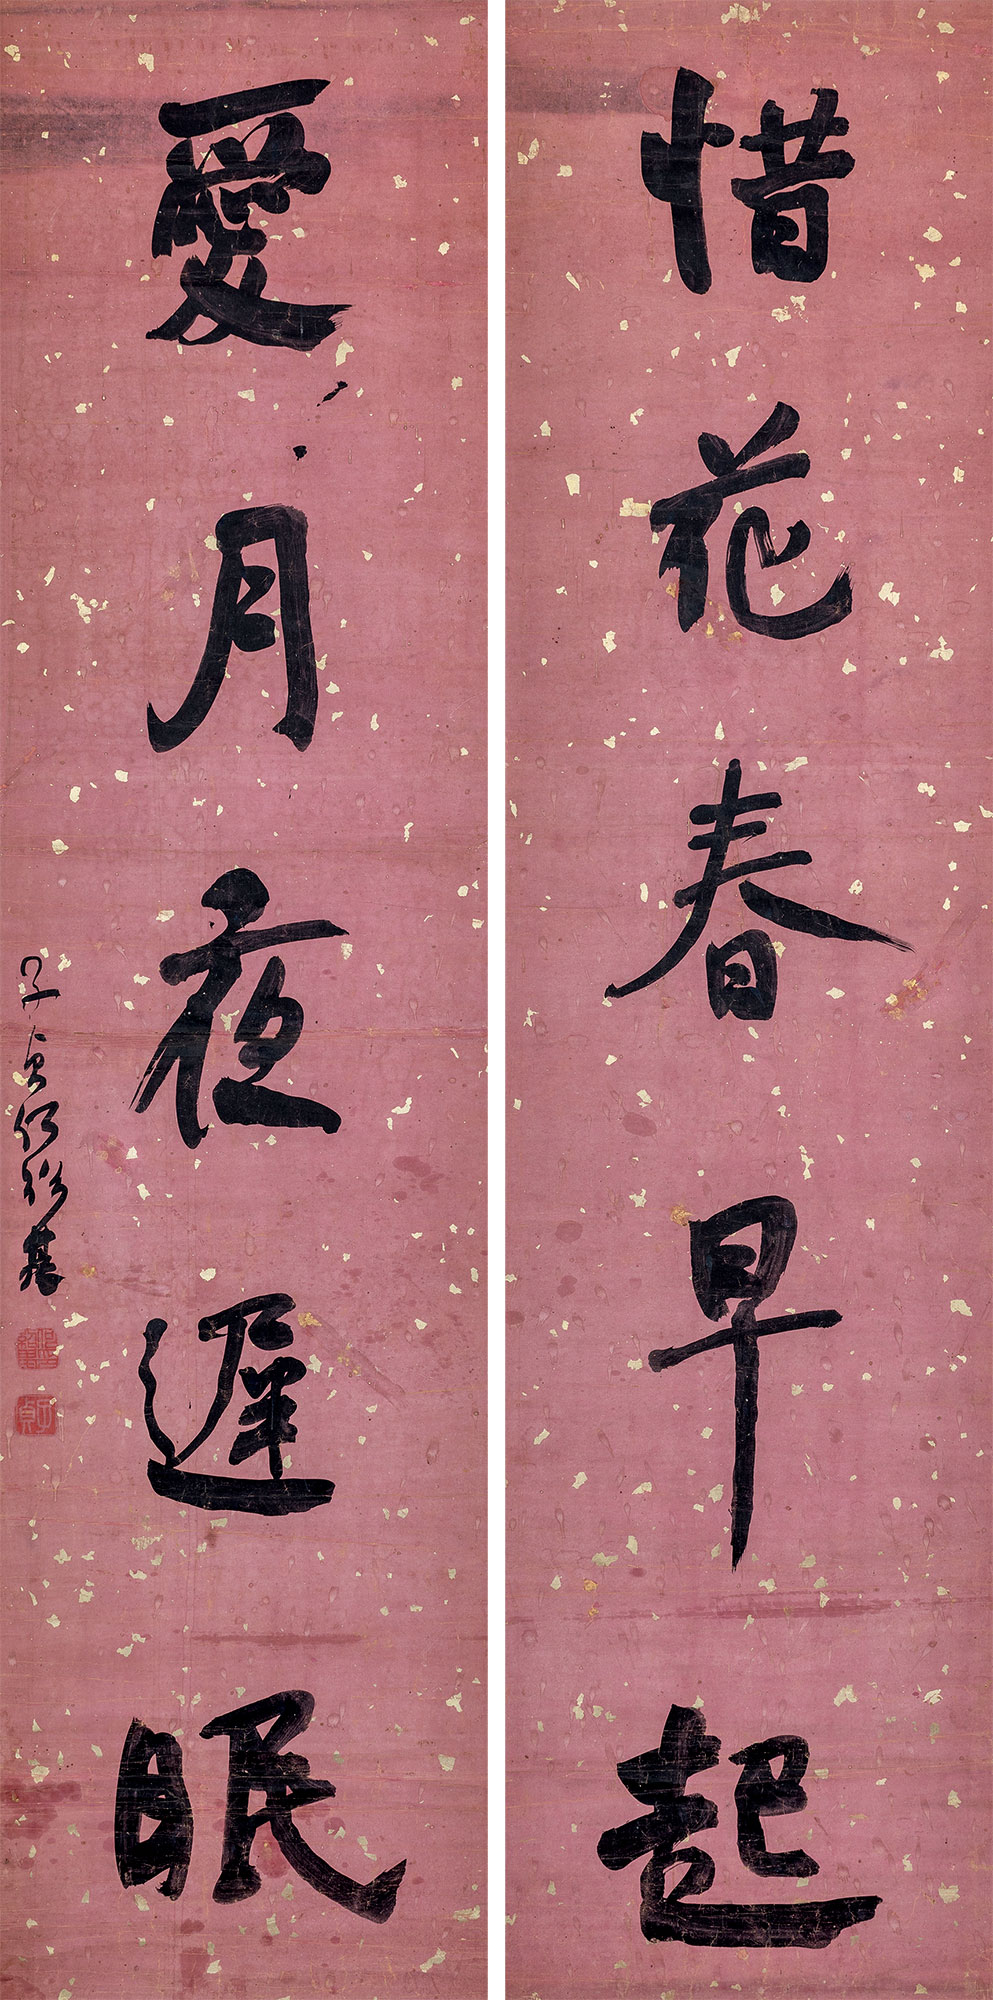 惜花春早起
愛月夜遲眠
子貞何紹基
子貞